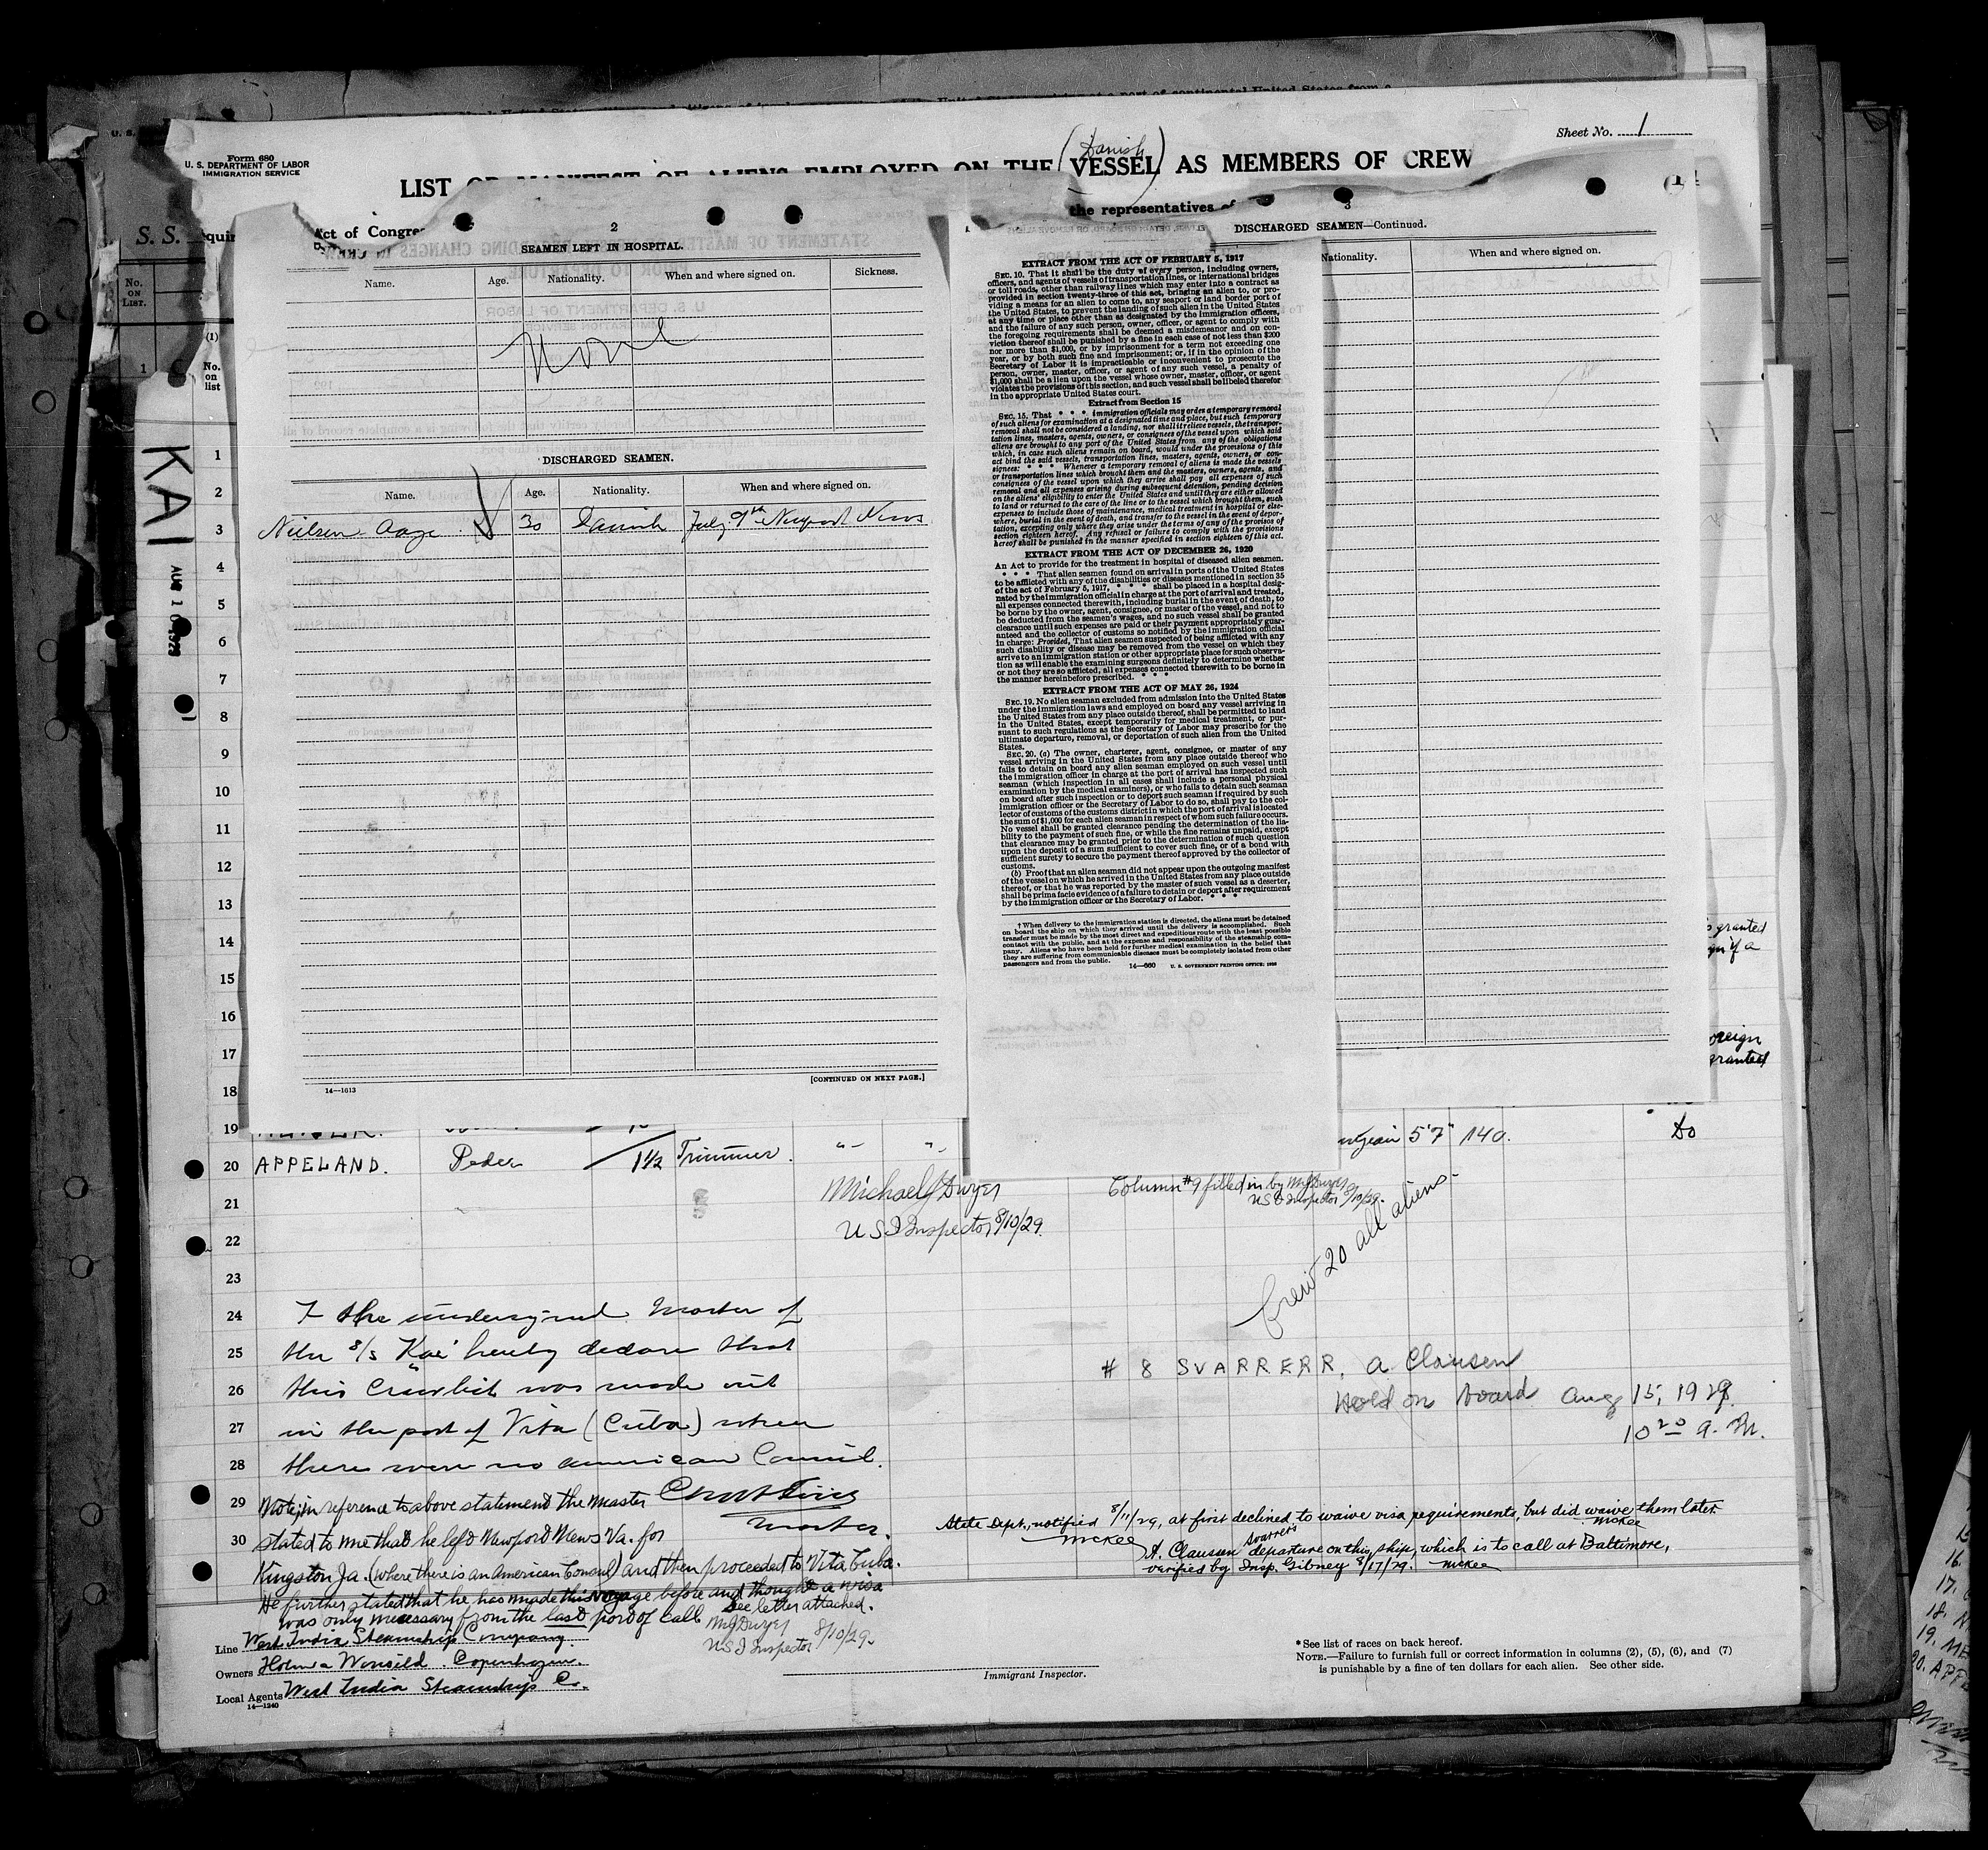 Form 680
U. S. DEPARTMENT OF LABOR
IMMIGRATION SERVICE
Sheet No. 1
(Danish)
LIST OR MANIFEST OF ALIENS EMPLOYED ON THE VESSEL AS MEMBERS OF CREW
S. S.
Act of Congres
the representatives of
No.
ON
LIST.
(1)
No.
on
list
1
KAI
AUG 10 1929
2
SEAMEN LEFT IN HOSPITAL.
Name. Age. Nationality. When and where signed on. Sickness.
None
DISCHARGED SEAMEN.
Name. Age. Nationality. When and where signed on.
Nielsen Aage 30 Danish July 9th Newport News
14—1613
[CONTINUED ON NEXT PAGE.]
EXTRACT FROM THE ACT OF FEBRUARY 5, 1917
SEC. 10. That it shall be the duty of every person, including owners,
officers, and agents of vessels of transportation lines, or international bridges
or toll roads, other than railway lines which may enter into a contract as
provided in section twenty-three of this act, bringing an alien to, or pro-
viding a means for an alien to come to, any seaport or land border port of
the United States, to prevent the landing of such alien in the United States
at any time or place other than as designated by the immigration officers,
and the failure of any such person, owner, officer, or agent to comply with
the foregoing requirements shall be deemed a misdemeanor and on con-
viction thereof shall be punished by a fine in each case of not less than $200
nor more than $1,000, or by imprisonment for a term not exceeding one
year, or by both such fine and imprisonment; or, if in the opinion of the
Secretary of Labor it is impracticable or inconvenient to prosecute the
person, owner, master, officer, or agent of any such vessel, a penalty of
$1,000 shall be a lien upon the vessel whose owner, master, officer, or agent
violates the provisions of this section, and such vessel shall be libeled therefor
in the appropriate United States court.
Extract from Section 15
SEC. 15. That * * * immigration officials may order a temporary removal
of such aliens for examination at a designated time and place, but such temporary
removal shall not be considered a landing, nor shall it relieve vessels, the transpor-
tation lines, masters, agents, owners, or consignees of the vessel upon which said
aliens are brought to any port of the United States from any of the obligations
which, in case such aliens remain on board, would under the provisions of this
act bind the said vessels, transportation lines, masters, agents, owners, or con-
signees: * * * Whenever a temporary removal of aliens is made the vessels
or transportation lines which brought them and the masters, owners, agents, and
consignees of the vessel upon which they arrive shall pay all expenses of such
removal and all expenses arising during subsequent detention, pending decision
on the aliens' eligibility to enter the United States and until they are either allowed
to land or returned to the care of the line or to the vessel which brought them, such
expenses to include those of maintenance, medical treatment in hospital or else-
where, burial in the event of death, and transfer to the vessel in the event of depor-
tation, excepting only where they arise under the terms of any of the provisos of
section eighteen hereof. Any refusal or failure to comply with the provisions
hereof shall be punished in the manner specified in section eighteen of this act.
EXTRACT FROM THE ACT OF DECEMBER 26, 1920
An Act to provide for the treatment in hospital of diseased alien seamen.
* * * That alien seamen found on arrival in ports of the United States
to be afflicted with any of the disabilities or diseases mentioned in section 35
of the act of February 5, 1917, * * * shall be placed in a hospital desig-
nated by the immigration official in charge at the port of arrival and treated,
all expenses connected therewith, including burial in the event of death, to
be borne by the owner, agent, consignee, or master of the vessel, and not to
be deducted from the seamen's wages, and no such vessel shall be granted
clearance until such expenses are paid or their payment appropriately guar-
anteed and the collector of customs so notified by the immigration official
in charge: Provided, That alien seamen suspected of being afflicted with any
such disability or disease may be removed from the vessel on which they
arrive to an immigration station or other appropriate place for such observa-
tion as will enable the examining surgeons definitely to determine whether
or not they are so afflicted, all expenses connected therewith to be borne in
the manner hereinbefore prescribed. * * *
EXTRACT FROM THE ACT OF MAY 26, 1924
SEC. 19. No alien seaman excluded from admission into the United States
under the immigration laws and employed on board any vessel arriving in
the United States from any place outside thereof, shall be permitted to land
in the United States, except temporarily for medical treatment, or pur-
suant to such regulations as the Secretary of Labor may prescribe for the
ultimate departure, removal, or deportation of such alien from the United
States.
SEC. 20. (a) The owner, charterer, agent, consignee, or master of any
vessel arriving in the United States from any place outside thereof who
fails to detain on board any alien seaman employed on such vessel until
the immigration officer in charge at the port of arrival has inspected such
seaman (which inspection in all cases shall include a personal physical
examination by the medical examiners), or who fails to detain such seaman
on board after such inspection or to deport such seaman if required by such
immigration officer or the Secretary of Labor to do so, shall pay to the col-
lector of customs of the customs district in which the port of arrival is located
the sum of $1,000 for each alien seaman in respect of whom such failure occurs.
No vessel shall be granted clearance pending the determination of the lia-
bility to the payment of such fine, or while the fine remains unpaid, except
that clearance may be granted prior to the determination of such question
upon the deposit of a sum sufficient to cover such fine, or of a bond with
sufficient surety to secure the payment thereof approved by the collector of
customs.
(b) Proof that an alien seaman did not appear upon the outgoing manifest
of the vessel on which he arrived in the United States from any place outside
thereof, or that he was reported by the master of such vessel as a deserter,
shall be prima facie evidence of a failure to detain or deport after requirement
by the immigration officer or the Secretary of Labor. * * *
† When delivery to the immigration station is directed, the aliens must be detained
on board the ship on which they arrived until the delivery is accomplished. Such
transfer must be made by the most direct and expeditious route with the least possible
contact with the public, and at the expense and responsibility of the steamship com-
pany. Aliens who have been held for further medical examination in the belief that
they are suffering from communicable diseases must be completely isolated from other
passengers and from the public.
14—680 U. S. GOVERNMENT PRINTING OFFICE: 1928
3
DISCHARGED SEAMEN—Continued.
Nationality. When and where signed on.
granted
if a
oreign
granted
1
2
3
4
5
6
7
8
9
10
11
12
13
14
15
16
17
18
19
20 APPELAND. Peder 1½ Trimmer. 5'7" 140. Do
21 Michael J Dwyer Column #9 filled in by M J Dwyer
U S I Inspector 8/10/29.
22 U S I Inspector 8/10/29.
Crew 20 all aliens.
23
24 I the undersigned Master of
25 the s/s "Kai" hereby declare that
26 this Crewlist was made out
27 in the port of Vita (Cuba) where
28 there were no american Consul.
29
Master.
30
# 8 SVARRERR, A. Clausen
Held on board Aug 15, 1929
10 20 a. m.
Note; in reference to above statement the Master
stated to me that he left Newport News Va. for
Kingston Ja. (where there is an American Consul) and then proceeded to Vita Cuba.
He further stated that he has made this voyage before and thought a visa
was only necessary from the last port of call. See letter attached.
M J Dwyer
U S I Inspector 8/10/29.
State Dept., notified 8/11/29, at first declined to waive visa requirements, but did waive them later.
McKee McKee
A. Clausen Svarrer's departure on this ship, which is to call at Baltimore,
verified by Insp. Gibney 8/17/29. McKee
Line West India Steamship Company.
Owners Holm & Wonsild. Copenhagen.
Local Agents West India Steamship Co.
14—1240
Immigrant Inspector.
* See list of races on back hereof.
NOTE.—Failure to furnish full or correct information in columns (2), (5), (6), and (7)
is punishable by a fine of ten dollars for each alien. See other side.
16.
17.
18.
19.
20. APPE